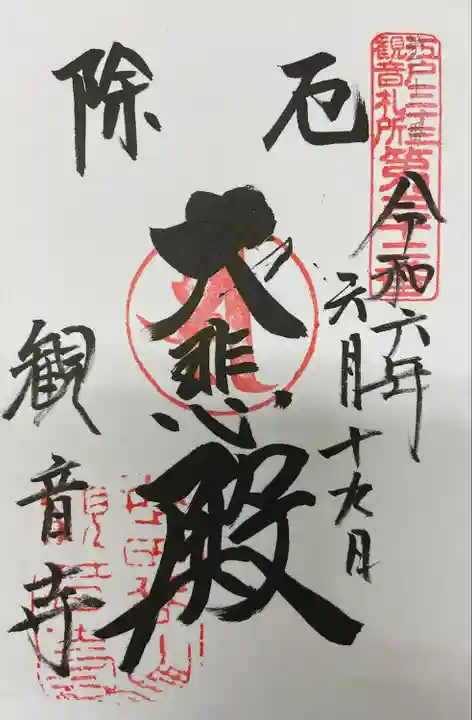 江戸三十三
観音札所
第三十二番
令和六年
六月十九日
厄除
大悲殿
観音寺
世田谷山